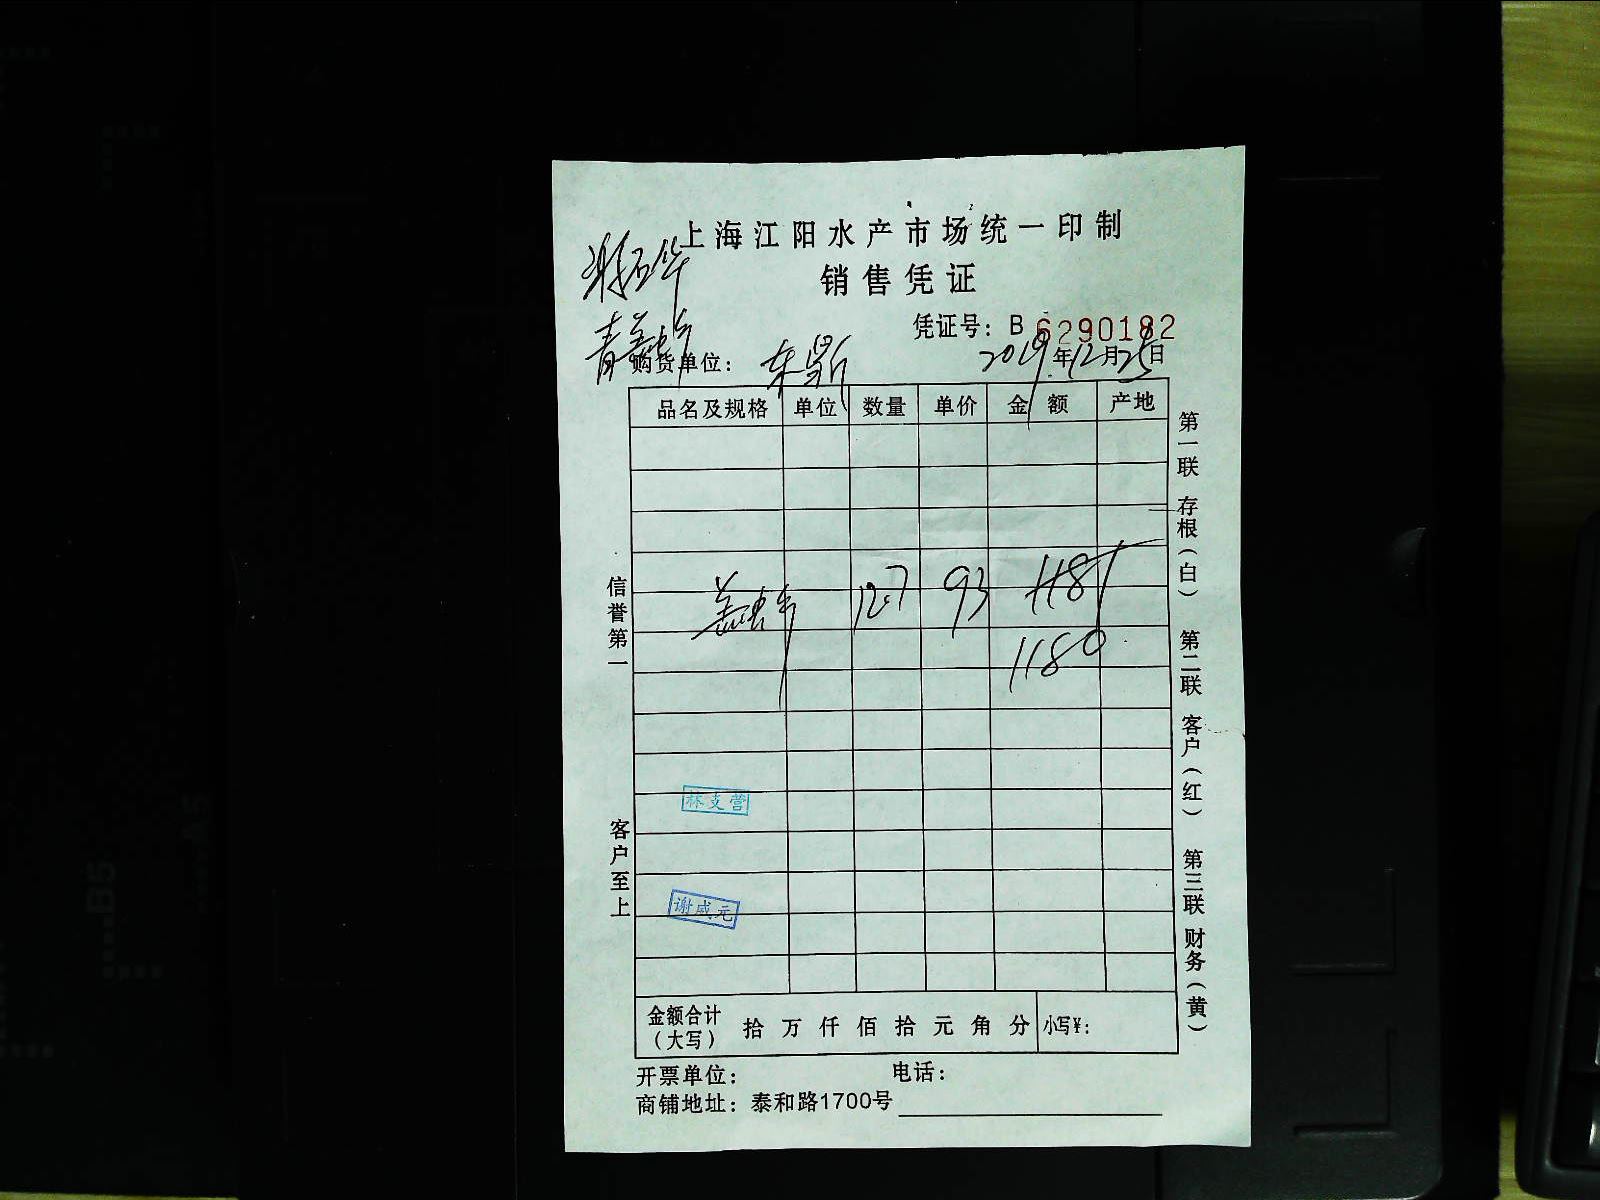 上海江阳水产市场统一印制
销售凭证
凭证号：B 6290182
购货单位：
2019年12月25日
品名及规格 单位 数量 单价 金额 产地
12.7 93 1181
1180
林支营
谢成元
金额合计（大写） 拾万仟佰拾元角分 小写¥：
开票单位： 电话：
商铺地址：泰和路1700号
信誉第一
客户至上
第一联 存根（白） 第二联 客户（红） 第三联 财务（黄）
B5
A5